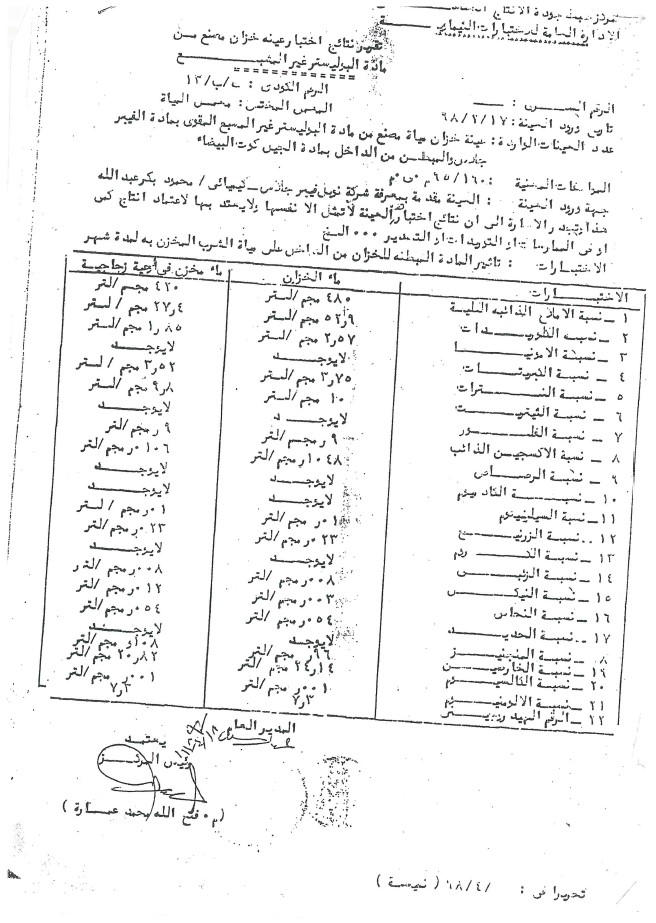 مركز ضبط جودة الانتاج
الإدارة العامة للاختبارات الكيميائية
تقرير نتائج اختبار عينه خزان مصنع من
مادة البوليستر غير المشبع
الرقم الكودى : ب/ب/١٣
المعمل المختص : معمل المياة
الرقم السرى : ــــ
تاريخ ورود العينة : ٩٨/٢/١٧
عدد العينات الواردة : عينة خزان مياة مصنع من مادة البوليستر غير المشبع المقوى بمادة الفيبر
جلاس والمبطن من الداخل بمادة الجيل كوت البيضاء
المواصفات المعنية : ٩٥/١٦٠ م ٠ ق ٠ م
جهة ورود العينة : العينة مقدمة بمعرفة شركة نوبل فيبر جلاس – كيميائى / محمود بكر عبد الله
هذا وتجدر الاشارة الى ان نتائج اختبار العينة لاتمثل الا نفسها ولايعتد بها لاعتماد انتاج كمى
او فى الممارسات او التوريدات او التصدير ٠٠٠ الخ
الاختبارات : تاثير المادة المبطنه للخزان من الداخل على مياة الشرب المخزن به لمدة شهر
الاختبارات ماء الخزان ماء مخزن فى أوعية زجاجية
١ – نسبة الاملاح الذائبه الكلية ٤٨٠ مجم/لتر ٤٢٠ مجم/لتر
٢ – نسبه الكلوريدات ٥٢٫٩ مجم/لتر ٢٧٫٤ مجم/لتر
٣ – نسبة الامونيا ٢٫٥٧ مجم/لتر ١٫٨٥ مجم/لتر
٤ – نسبة الكبريتات لايوجد لايوجد
٥ – نسبة النترات ٣٫٧٥ مجم/لتر ٣٫٥٢ مجم/لتر
٦ – نسبة النيتريت ١٠ مجم/لتر ٩٫٨ مجم/لتر
٧ – نسبة الفلور لايوجد لايوجد
٨ – نسبة الاكسجين الذائب ٩ر مجم/لتر ٩ر مجم/لتر
٩ – نسبة الرصاص ١٠٤٨ر مجم/لتر ٠١٠٦ر مجم/لتر
١٠ – نسبة الكادميوم لايوجد لايوجد
١١ – نسبة السيلينيوم لايوجد لايوجد
١٢ – نسبة الزرنيخ ٠١ر مجم/لتر ٠١ر مجم/لتر
١٣ – نسبة الكروم ٠٢٣ر مجم/لتر ٠٢٣ر مجم/لتر
١٤ – نسبة الزئبق لايوجد لايوجد
١٥ – نسبة النيكل ٠٠٨ر مجم/لتر ٠٠٨ر مجم/لتر
١٦ – نسبة النحاس ٠٠٣ر مجم/لتر ٠١٢ر مجم/لتر
١٧ – نسبة الحديد ٠٥٤ر مجم/لتر ٠٥٤ر مجم/لتر
٨ – نسبة المنجنيز لايوجد لايوجد
١٩ – نسبة الخارصين ٦٦ر مجم/لتر ١٠٨ر مجم/لتر
٢٠ – نسبة الكالسيوم ٢٤٫١٤ مجم/لتر ٢٠٫٨٢ مجم/لتر
٢١ – نسبة الالومنيوم ٠٠١ر مجم/لتر ٠٠١ر مجم/لتر
٢٢ – الرقم الهيدروجينى ٧٫٣ ٧٫٣
المدير العام
يعتمد
رئيس المركز
( م ٠ فتح الله محمد عمارة )
تحريرا فى : / ٩٨/٤ ( نميسة )